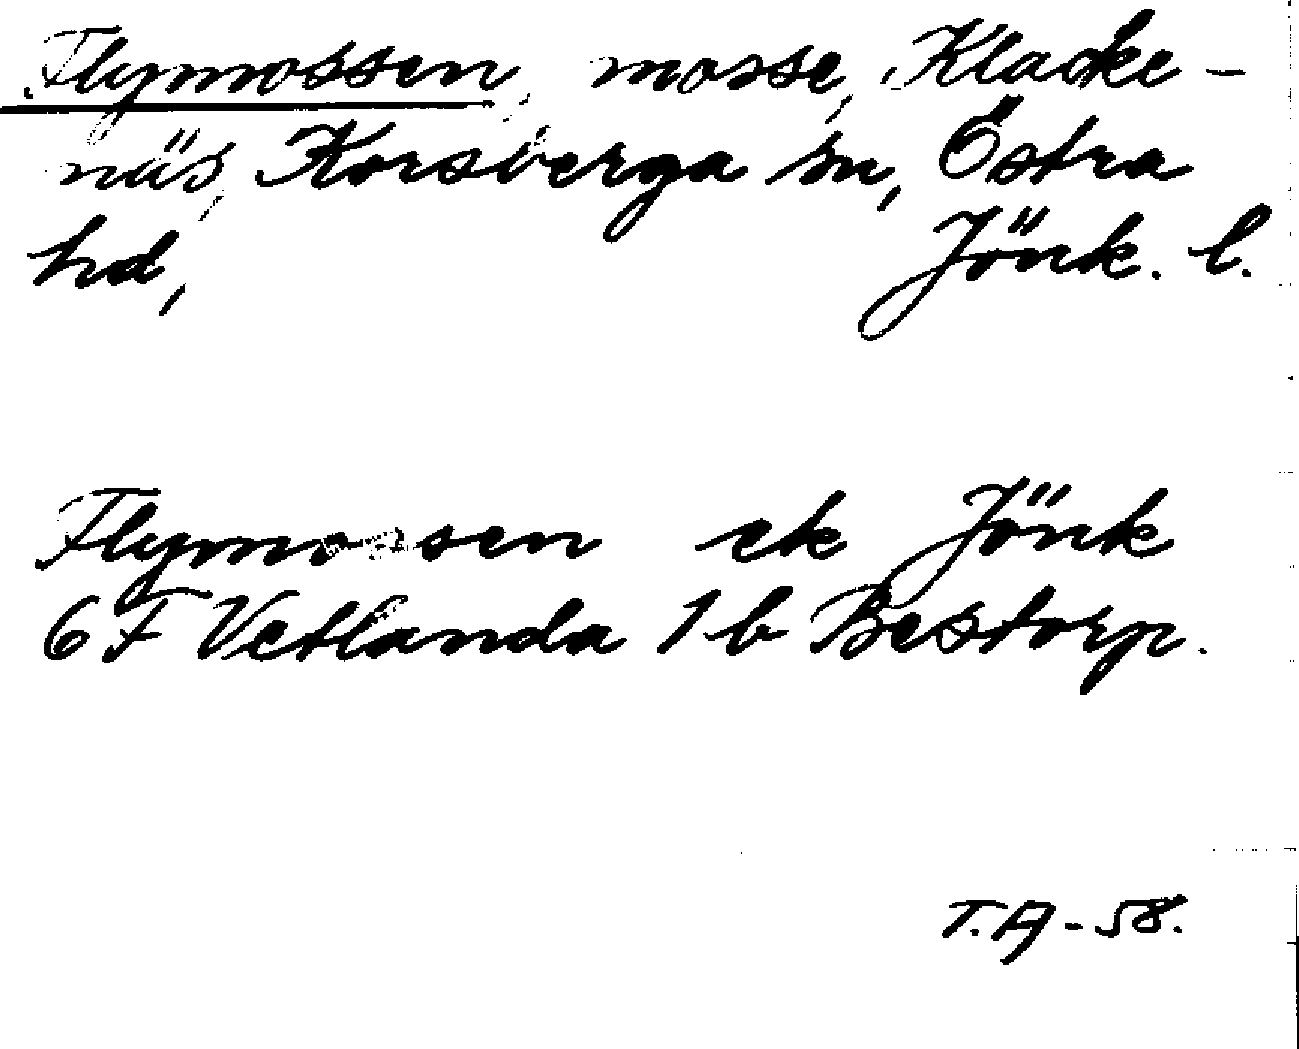 Flymossen, mosse, Klacke-
näs, Korsberga sn, Östra
hd, Jönk. l.
Flymossen ek Jönk
6 F Vetlanda 1 b Bestorp.
T.A-58.